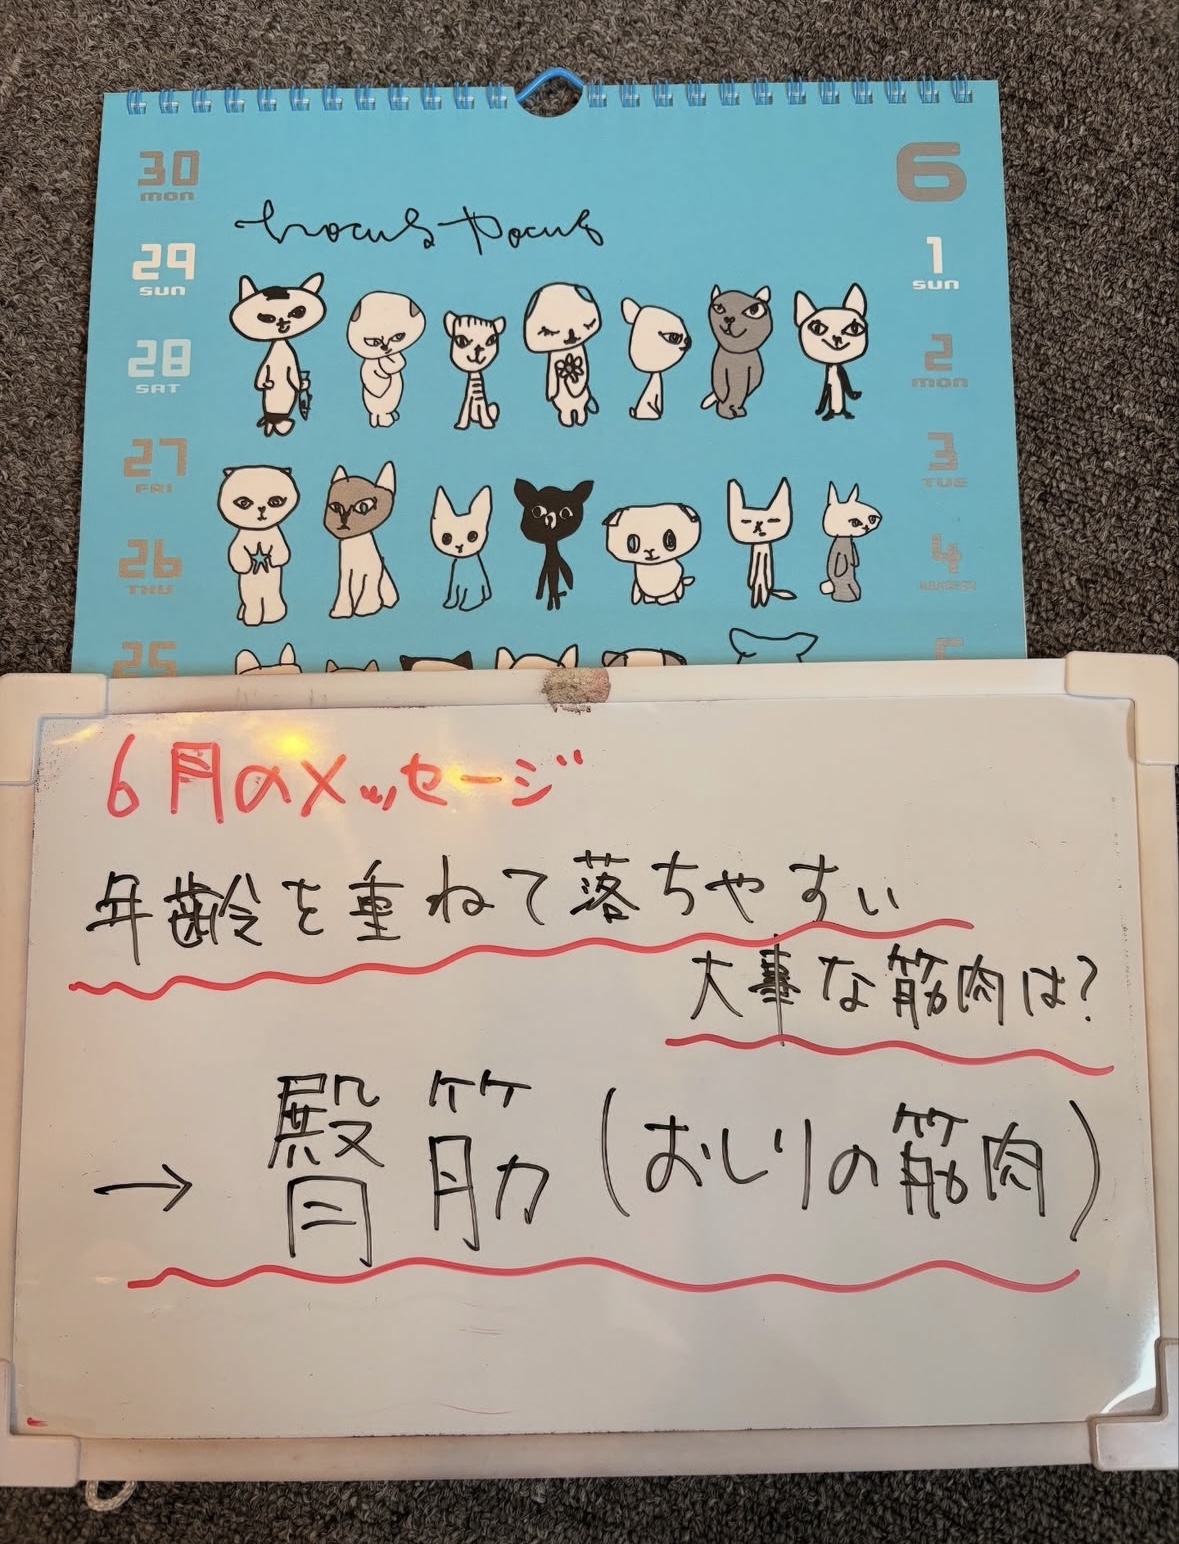 6
hocus pocus
30
MON
29
SUN
28
SAT
27
FRI
26
THU
25
1
SUN
2
MON
3
TUE
4
WED
6月のメッセージ
年齢を重ねて落ちやすい
大事な筋肉は?
→ 臀筋(おしりの筋肉)